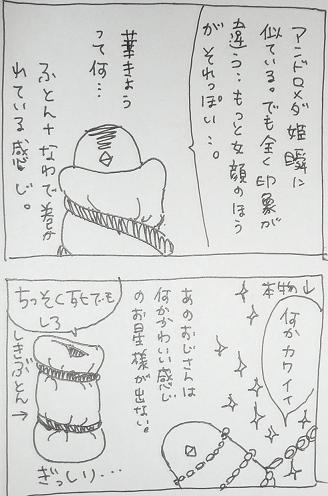 アンドロメダ姫瞬に
似ている。でも全く印象が
違う…もっと女顔のほう
がそれっぽい…。
華きょう
って何…
ふとん+なわで巻か
れている感じ。
本物↓
何かカワイイ
あのおじさんは
何かかわいい感じ
のお星様が出ない。
ちっそく死でも
しろ
しきぶとん→
ぎっしり…